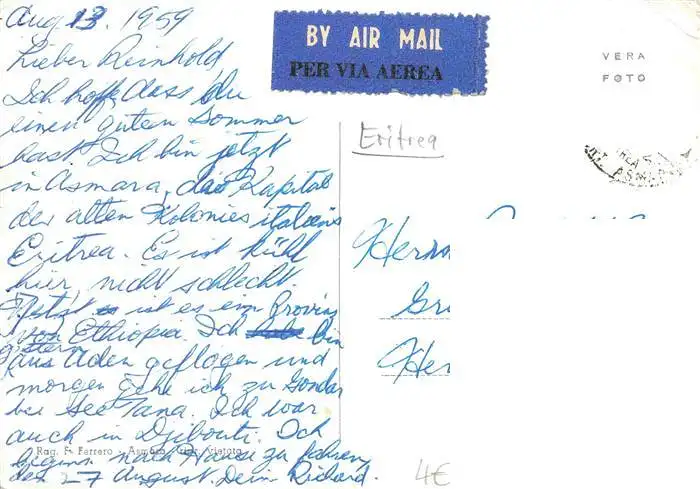 Aug 13. 1959
Lieber Reinhold,
Ich hoffe, dass du
einen guten Sommer
hast. Ich bin jetzt
in Asmara, das Kapital
der alten Kolonies italiens
Eritrea. Es ist kühl
hier, nicht schlecht.
Jetzt ist es ein Provinz
von Ethiopia. Ich bin
gestern
aus Aden geflogen und
morgen gehe ich zu Gondar
bei See Tana. Ich war
auch in Djibouti. Ich
Rag. F. Ferrero - Asmara - Vietata
beginne nach Hause zu fahren
den 27 August. Dein Richard.
BY AIR MAIL
PER VIA AEREA
VERA
FOTO
Eritrea
Herrn
Gr
Her
4€